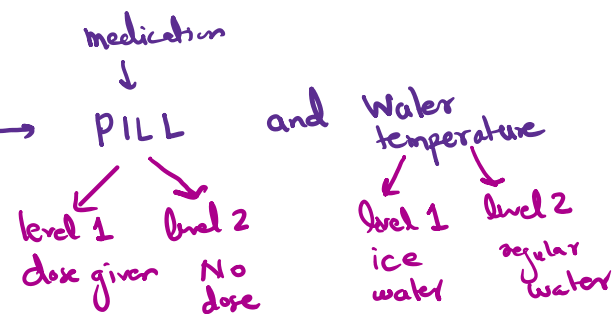 medication
PILL and Water temperature
level 1 level 2 level 1 level 2
dose given No dose ice water regular water